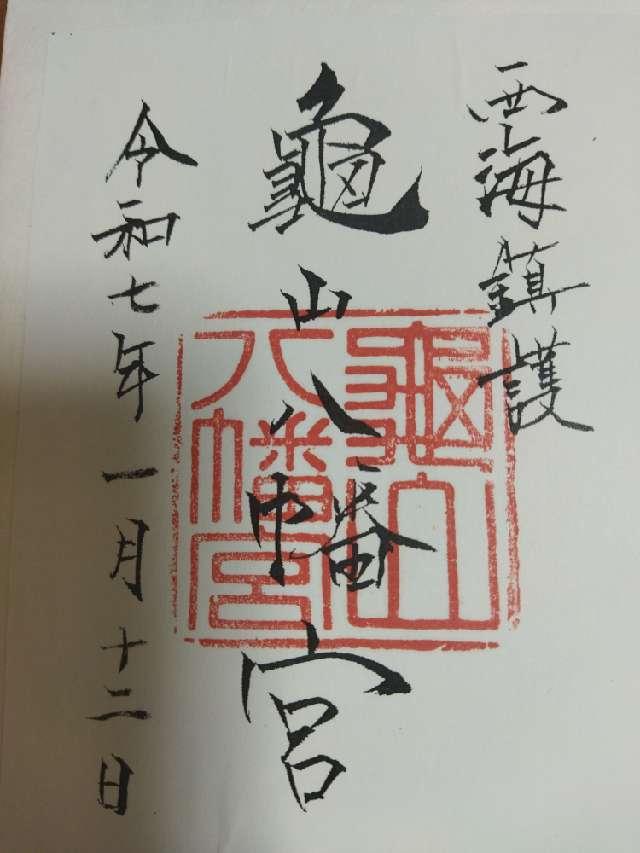 西海鎮護
龜山八幡宮
龜山八幡宮
令和七年一月十二日